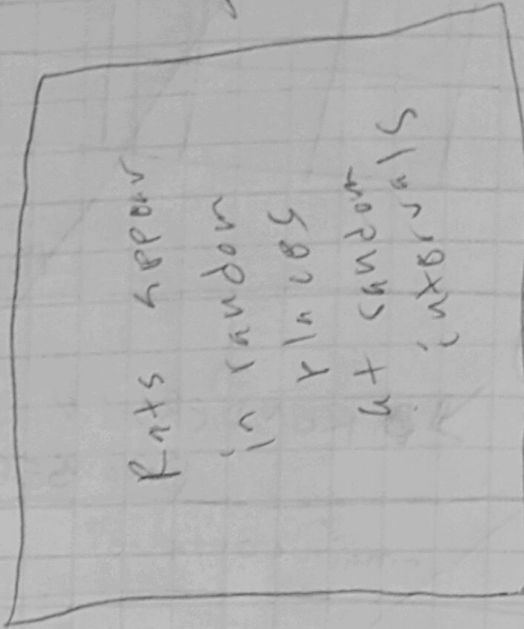 Rats appear
in random
places
at random
intervals